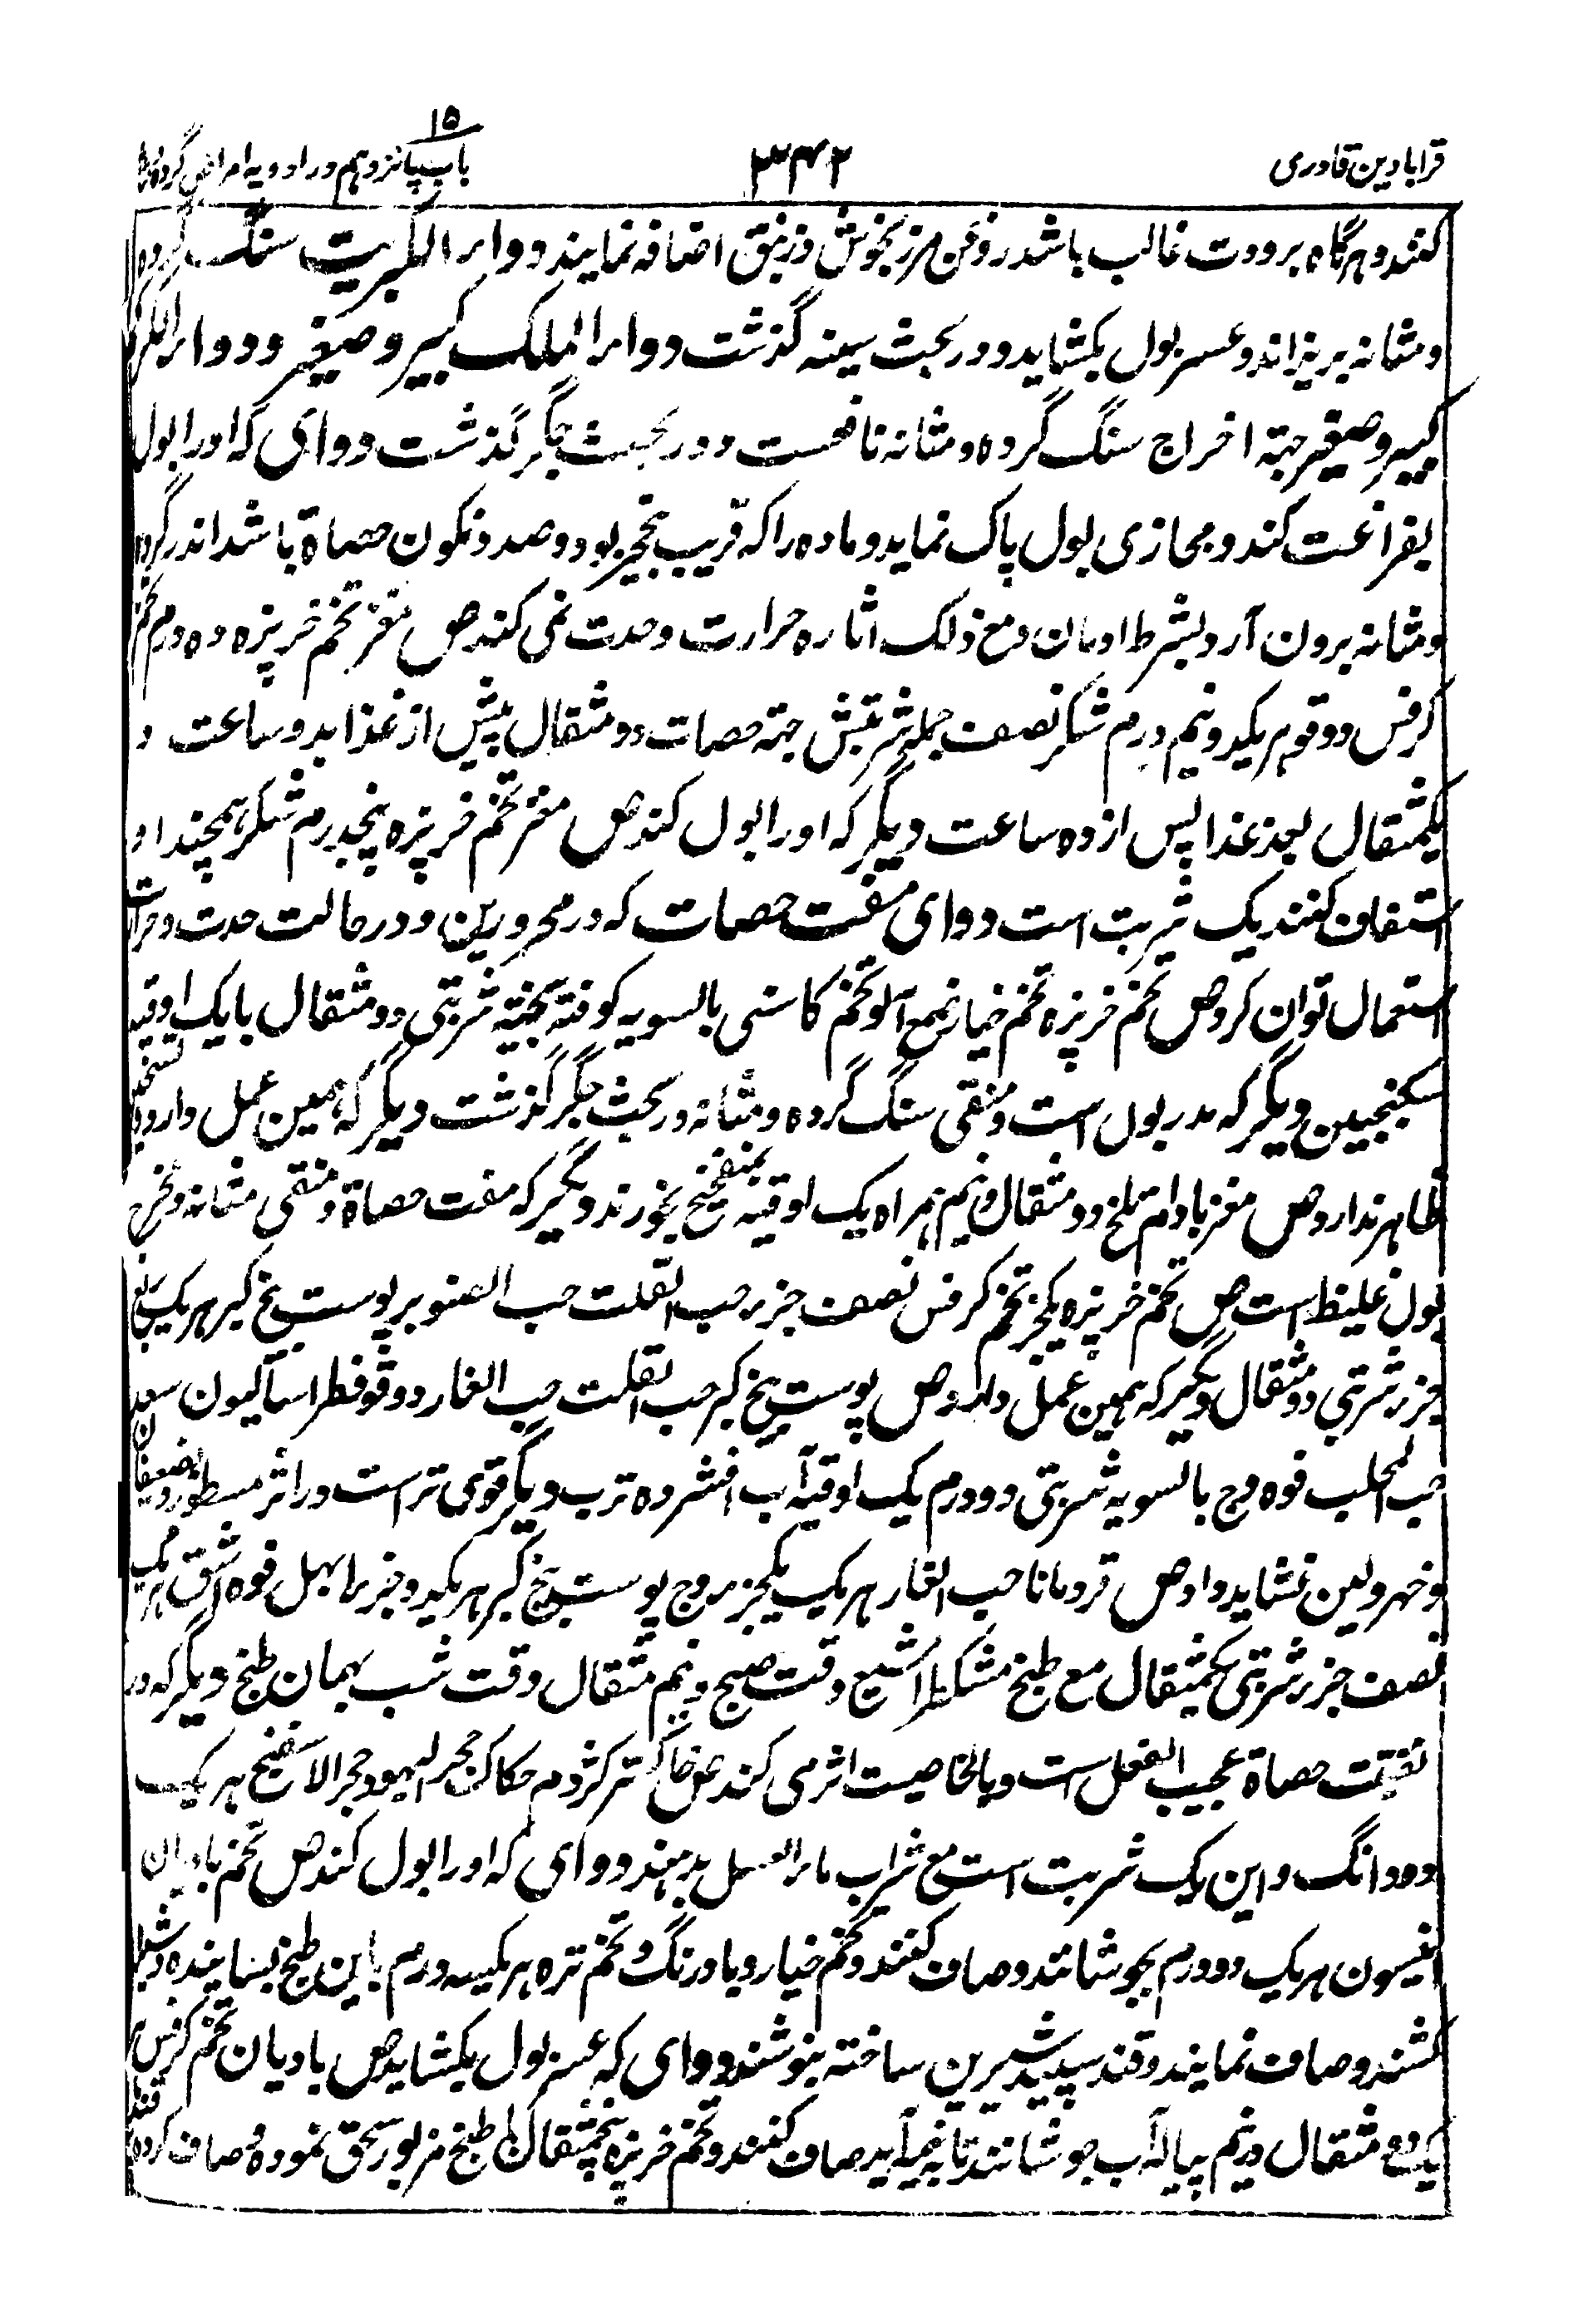 قرابادین قادری
۳۴۲
۱۵
باب پانزدهم در ادویه امراض گرده
کنند و هرگاه برودت غالب باشد روغن مرزنجوش و زنبق اضافه نمایند دواء الکبریت سنگ گرده
و مثانه بریزاند و عسر بول بکشاید و در بحث سینه گذشت دواء الملک کبیر و صغیر و دواء الکرکم
کبیر و صغیر جهة اخراج سنگ گرده و مثانه نافعست و در بحث جگر گذشت دوای که ادرار بول
بفراغت کند و مجازی بول پاک نماید و ماده را که قریب تحجر بود و صدد تکون حصاة باشد اندر گرده
و مثانه برون آرد بشرط ادمان و مع ذلک اثاره حرارت و حدت نمی کند ص مغز تخم خرپزه ده درم تخم
کرفس دوقو هر یکدو نیم درم شکر نصف جمله شربتش جهة حصات دو مثقال پیش از غذا بدو ساعت و
یکمثقال بعد غذا پس از ده ساعت دیگر که ادرار بول کند ص مغز تخم خرپزه پنجدرم شکر همچند او
استفاف کنند یک شربت است دوای مفتت حصات که در محرورین و در حالت حدت و حرارت
استعمال توان کرد ص تخم خرپزه تخم خیار صمغ آلو تخم کاسنی بالسویه کوفته بیخته شربتی دو مثقال با یک اوقیه
سکنجبین دیگر که مدر بول است و منقی سنگ گرده و مثانه در بحث جگر گذشت دیگر که همین عمل دارد و تسخین
ظاهر ندارد ص مغز بادام تلخ دو مثقال و نیم همراه یک اوقیه میفختج بخورند دیگر که مفتت حصاة و منقی مثانه و مخرج
بول غلیظ است ص تخم خرپزه یکجز تخم کرفس نصف جزء حب القلت حب الصنوبر پوست بیخ کبر هر یک ربع
جزء شربتی دو مثقال دیگر که همین عمل دارد ص پوست بیخ کبر حب القلت حب الغار دوقو فطراسالیون سعد
حب المحلب فوه وج بالسویه شربتی دو درم یک اوقیه آب افشرده ترب دیگر قوی تر است در اثر مسطور و ضعیفان
و خهرولین نشاید داد ص قردمانا حب الغار هر یک یکجزء وج پوست بیخ کبر هر یکدو جزء ابهل فوه اشق هر یک
نصف جزء شربتی یکمثقال مع طبخ مشکطرامشیع وقت صبح و نیم مثقال وقت شب بهمان طبخ دیگر که در
تفتیت حصاة عجیب الفعل است و بالخاصیت اثر می کند ص خاکستر کژدم حکاک حجر الیهود حجر الاسفنج هر یک
ده دانگ و این یک شربت است مع شراب ماء العسل بدهند دوای که ادرار بول کند ص تخم بادیان
انیسون هر یک دو درم بجوشانند و صاف کنند و تخم خیار و بادرنگ و تخم تره هر یکسه درم باین طبخ بسایند و شیره
کشند و صاف نمایند و قند سپید شیرین ساخته بنوشند دوای که عسر بول بکشاید ص بادیان تخم کرفس هر
یکدو مثقال در نیم پیاله آب جوشانند تا به نیم آید صاف کنند و تخم خرپزه پنجمثقال با طبخ مزبور سحق نموده و صاف کرده قند